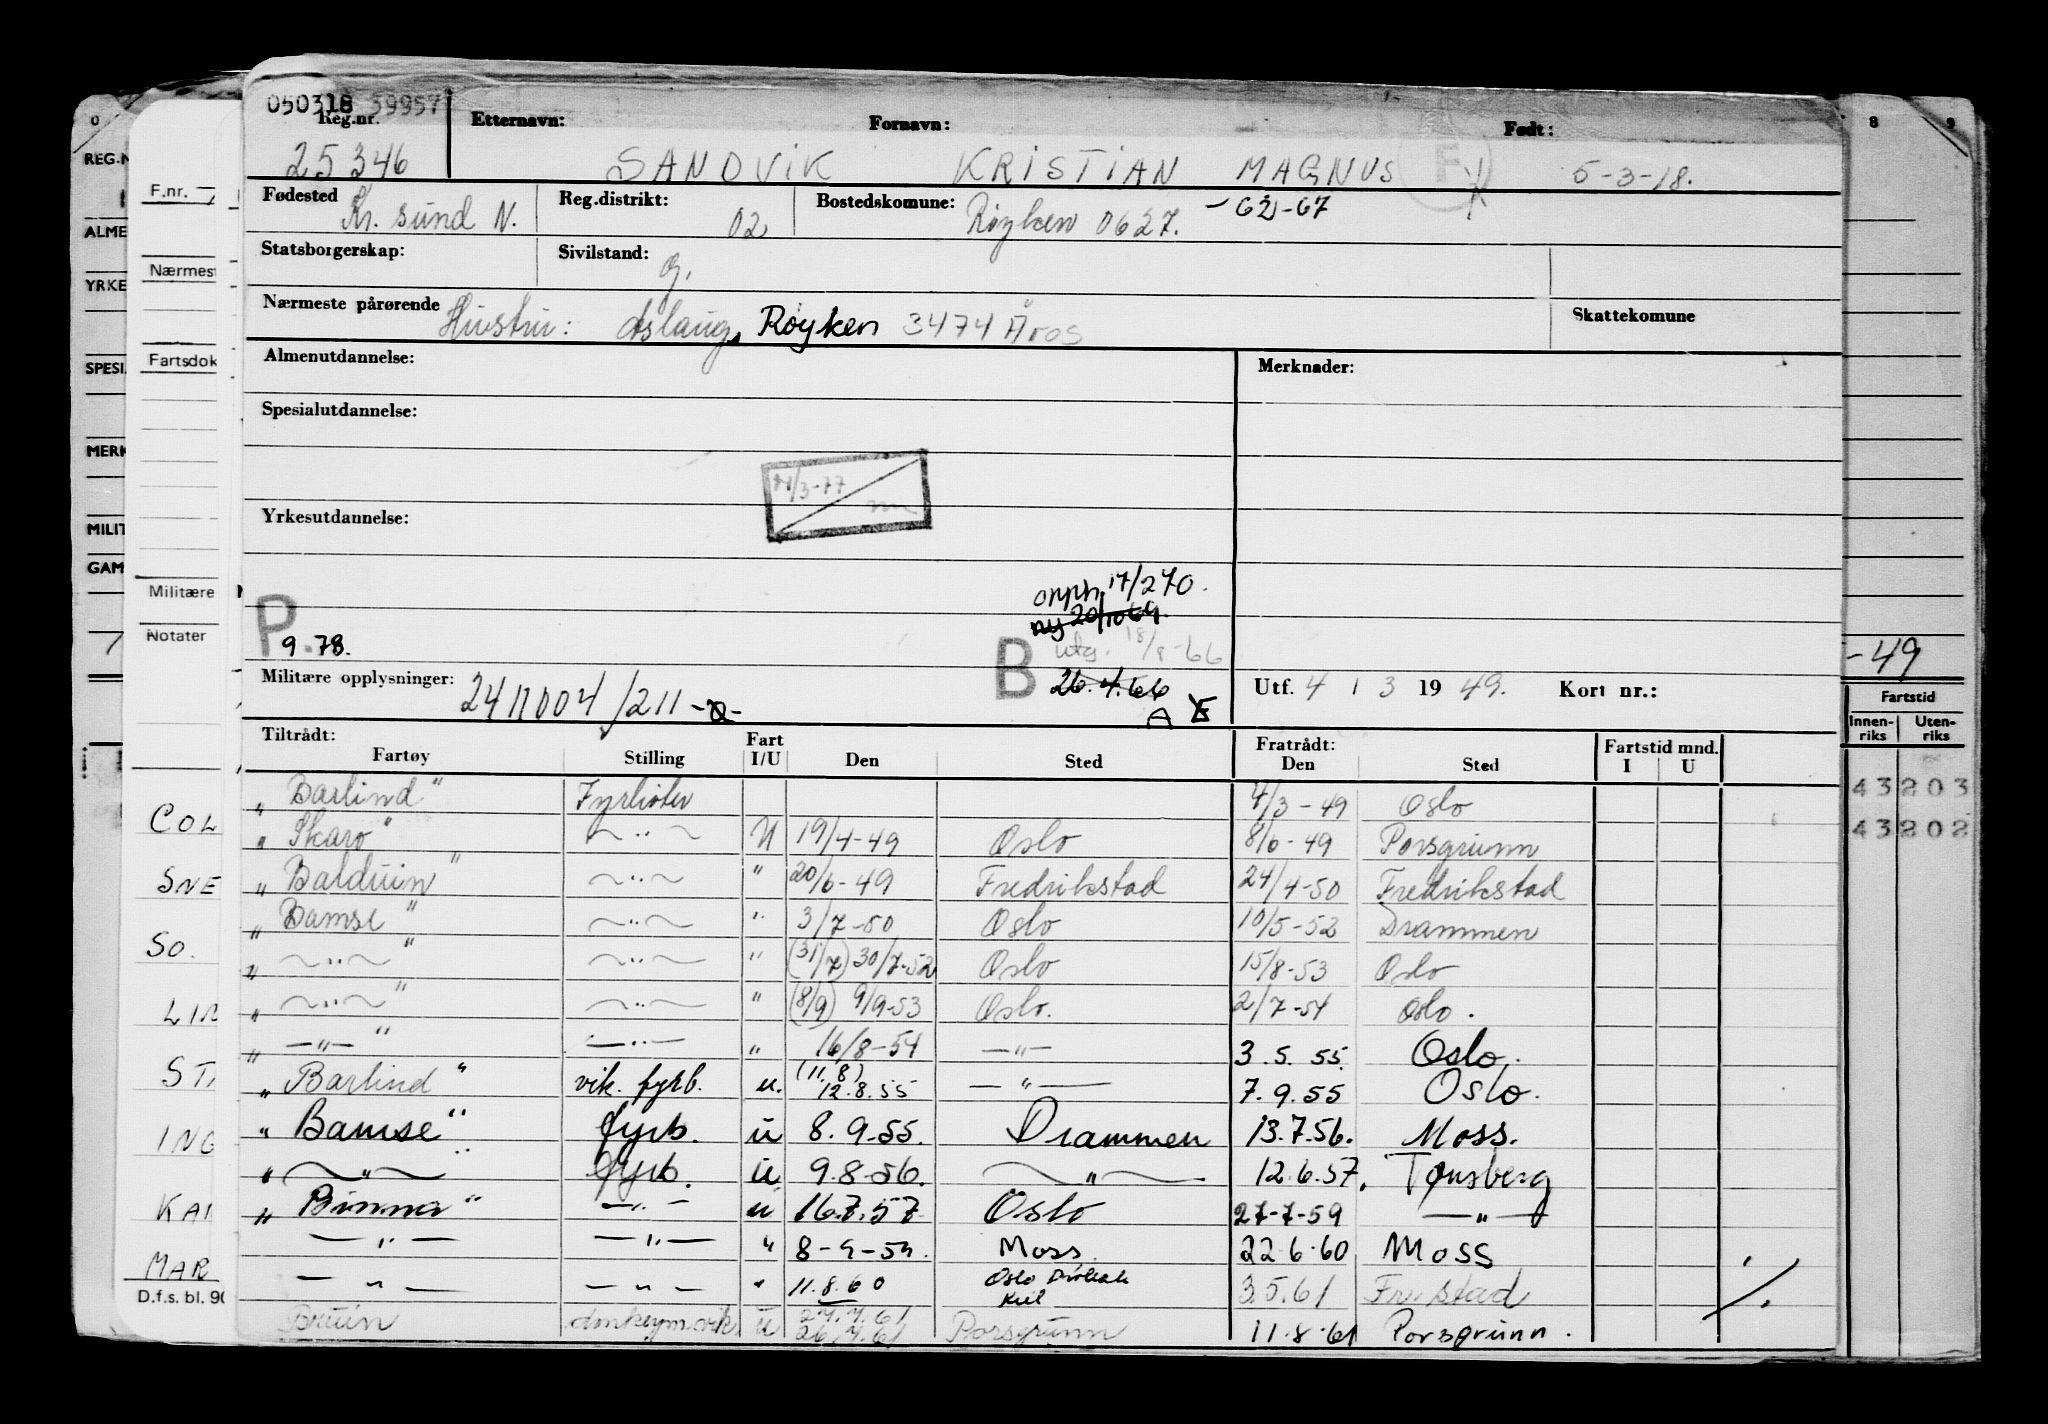 050318 39957
Reg.nr. Etternavn: Fornavn: Født:
25346 SANDVIK KRISTIAN MAGNUS F 5-3-18.
Fødested Reg.distrikt: Bostedskomune: - 62-67
Kr. sund N. 02 Røyken 0627.
Statsborgerskap: Sivilstand: g.
Nærmeste pårørende Skattekomune
Hustru: Aslaug, Røyken 3474 Åros
Almenutdannelse: Merknader:
Spesialutdannelse:
Yrkesutdannelse:
17/270.
ny 20/10 69.
P B utg. 18/8-66
9.78. 26.4.66
Militære opplysninger: 2411004/211 A
Utf. 4 / 3 1949. Kort nr.:
Tiltrådt: Fart Fratrådt: Fartstid mnd.
Fartøy Stilling I/U Den Sted Den Sted I U
„ Barlind" Fyrbøter 4/3-49 Oslo
„ Skaro" ~"~ U 19/4-49 Oslo 8/6-49 Porsgrunn
„ Balduin" ~"~ " 20/6-49 Fredrikstad 24/4-50 Fredrikstad
„ Bamse" ~"~ " 3/7-50 Oslo 10/5-52 Drammen
„ ~"~" ~"~ " (31/7) 30/7-52 Oslo 15/8-53 Oslo
„ ~"~" ~"~ " (8/9) 9/9-53 Oslo. 2/7-54 Oslo.
„ -"-" -"- " 16/8-54 -"- 3.5.55. Oslo.
„ Barlind" vik. fyrb. u. (11.8) 12.8.55 -"- 7.9.55 Oslo.
„ Bamse" fyrb. u 8.9-55. Drammen 13.7.56. Moss.
„ ~"~" fyrb. u 9.8-56. ~"~ 12.6.57. Tønsberg
„ Bimma" -"- u 16.7.57 Oslo 27-7-59 -"-
-"- -"- " 8-9-59. Moss. 22.6.60 Moss
-"- -"- " 11.8.60 Oslo 3.5.61 Fr.stad
Bruin donkeym.vik. u 27.7.61 26.7.61 Porsgrunn 11.8.61 Porsgrunn.
0
REG.N
ALME
YRKE
SPESI
MERK
MILIT
GAM
F.nr.
Nærmest
Fartsdok
Militære
Notater
COL
SNE
SO.
LIN
STA
ING
KAI
MAR
D.f.s. bl. 90
8 9
-49
Fartstid
Innen-riks Uten-riks
43203
43202